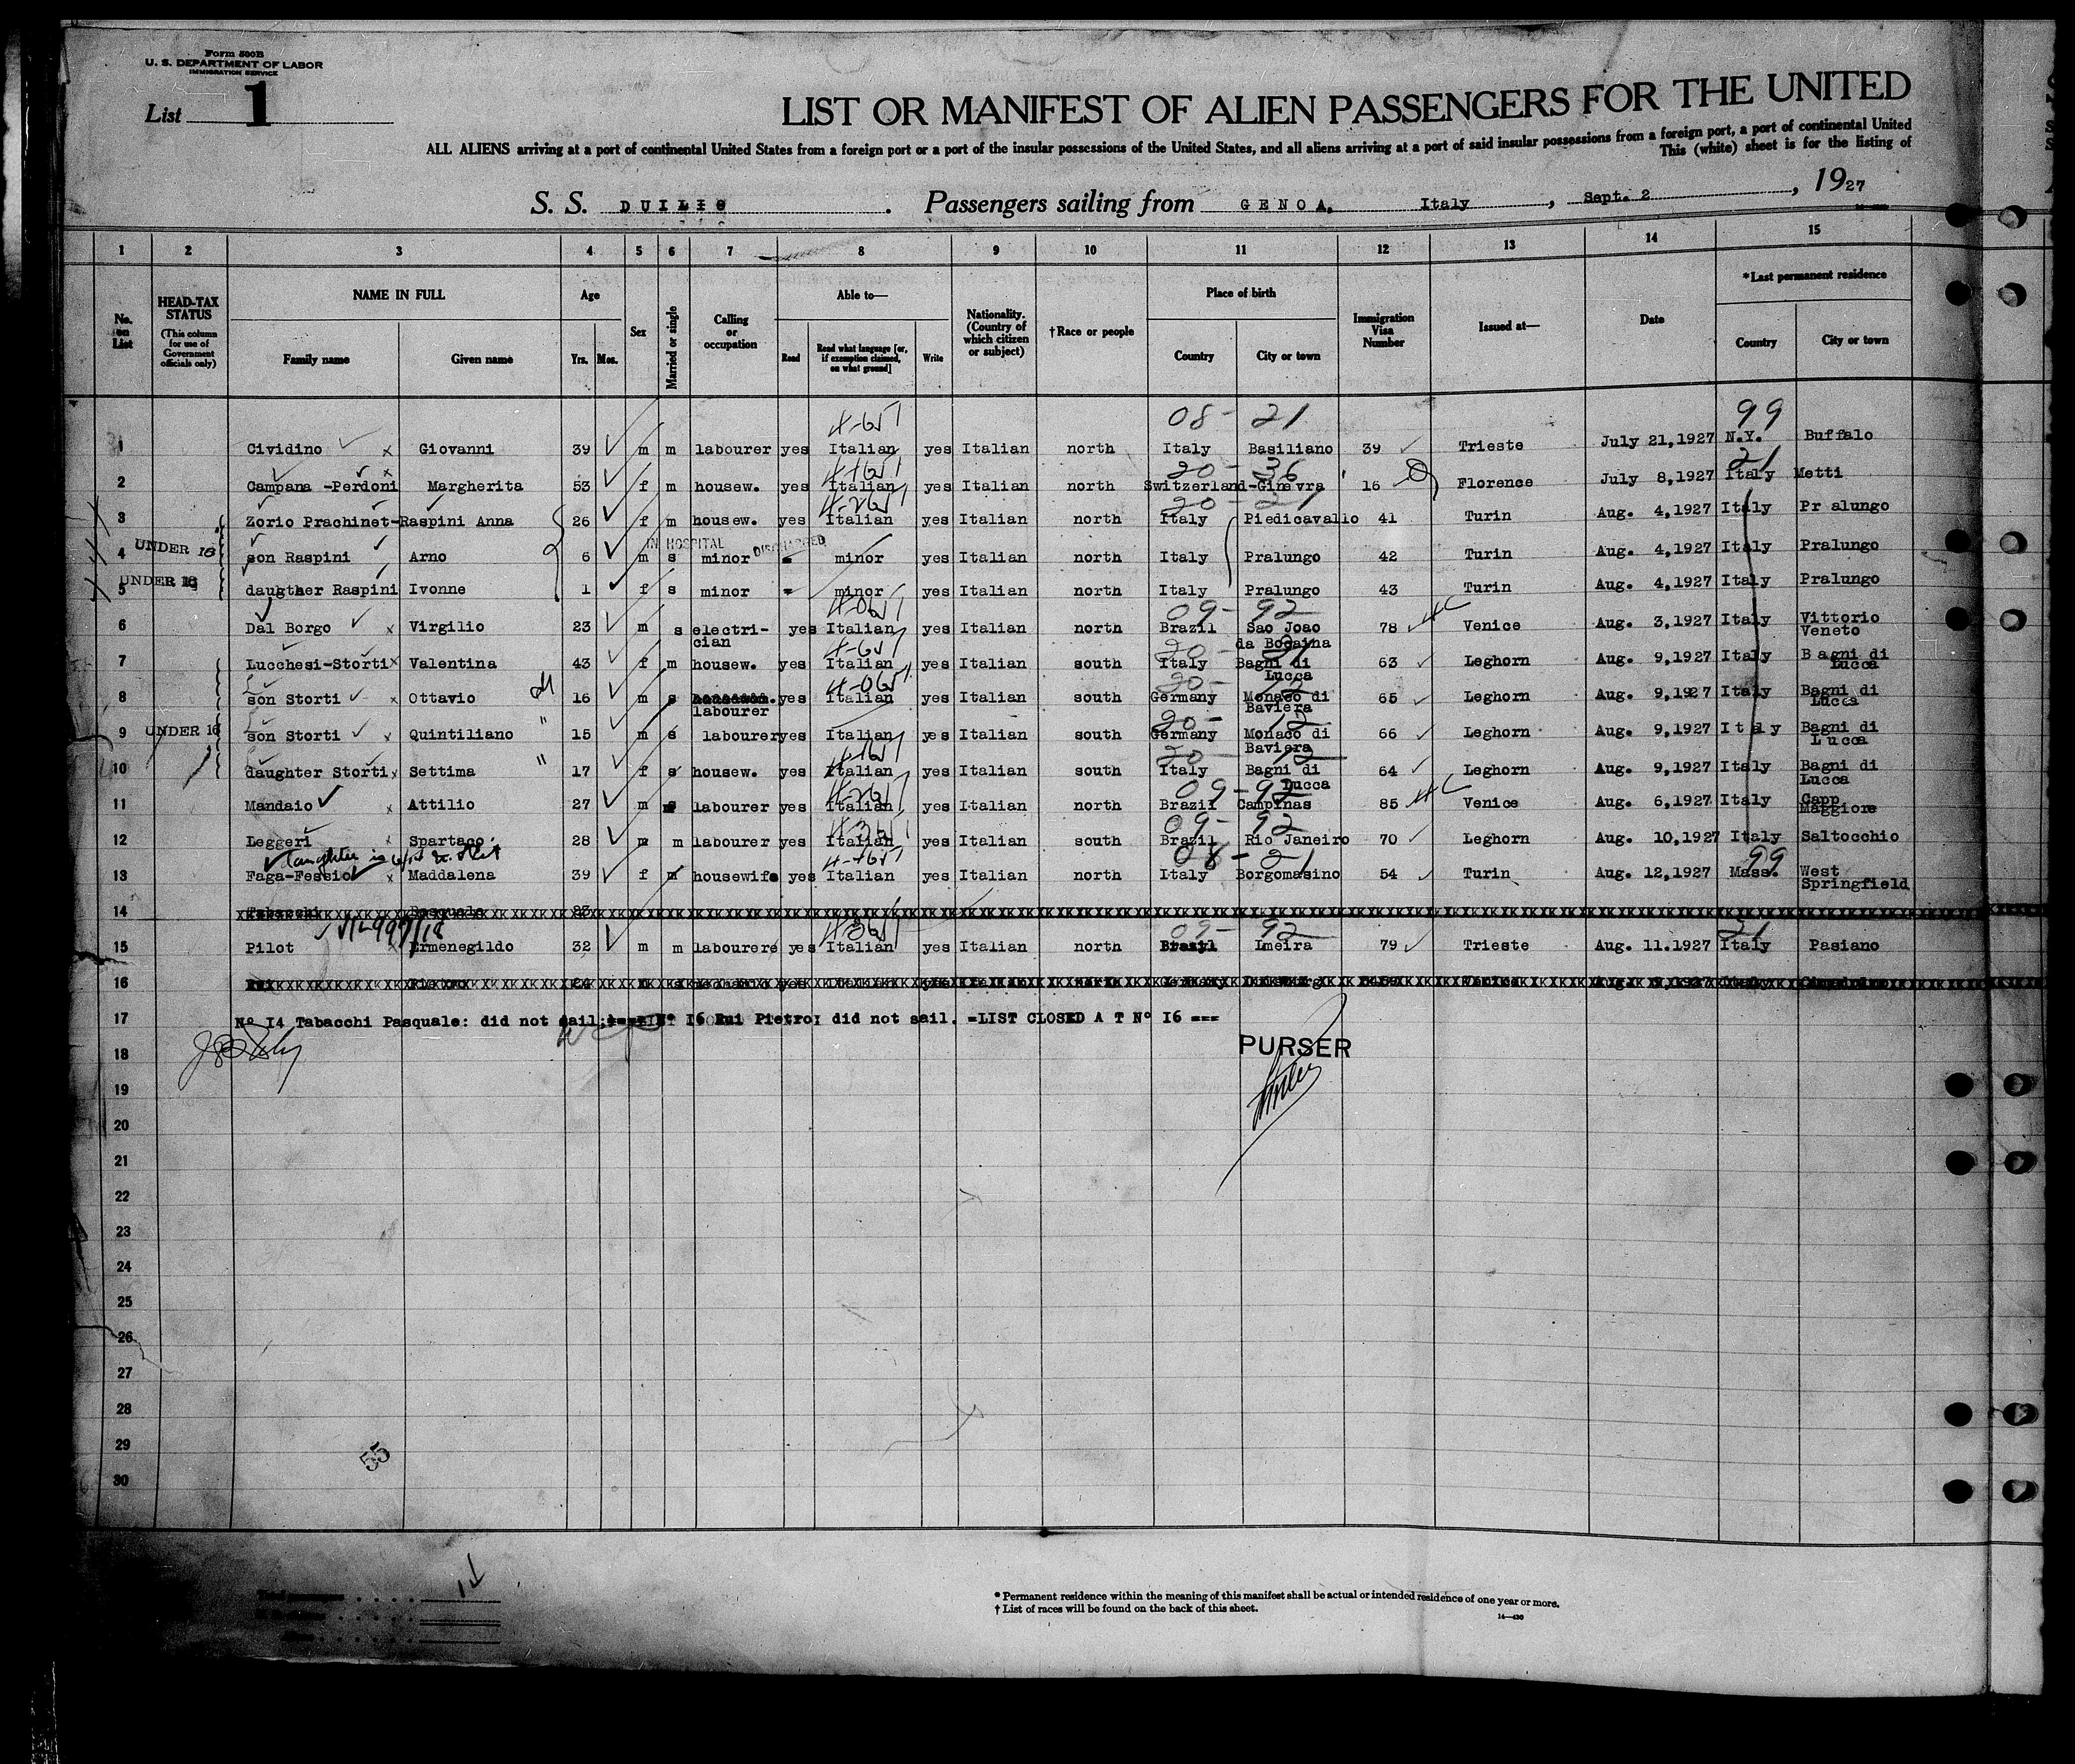 Form 500B
U. S. DEPARTMENT OF LABOR
IMMIGRATION SERVICE
List 1
LIST OR MANIFEST OF ALIEN PASSENGERS FOR THE UNITED
ALL ALIENS arriving at a port of continental United States from a foreign port or a port of the insular possessions of the United States, and all aliens arriving at a port of said insular possessions from a foreign port, a port of continental United
This (white) sheet is for the listing of
S. S. DUILIO. Passengers sailing from GENOA, Italy, Sept. 2, 1927
1 2 3 4 5 6 7 8 9 10 11 12 13 14 15
No. on List
HEAD-TAX STATUS (This column for use of Government officials only)
NAME IN FULL Family name Given name
Age Yrs. Mos.
Sex
Married or single
Calling or occupation
Able to— Read Read what language [or, if exemption claimed, on what ground] Write
Nationality. (Country of which citizen or subject)
†Race or people
Place of birth Country City or town
Immigration Visa Number
Issued at—
Date
*Last permanent residence Country City or town
08- 21 99
1 Cividino Giovanni 39 m m labourer yes Italian yes Italian north Italy Basiliano 39 Trieste July 21,1927 N.Y. Buffalo
20- 36 21
2 Campana -Perdoni Margherita 53 f m housew. yes Italian yes Italian north Switzerland-Ginevra 16 Florence July 8,1927 Italy Metti
20- 21
3 Zorio Prachinet-Raspini Anna 26 f m housew. yes Italian yes Italian north Italy Piedicavallo 41 Turin Aug. 4,1927 Italy Pr alungo
IN HOSPITAL DISCHARGED
UNDER 16
4 son Raspini Arno 6 m s minor - minor yes Italian north Italy Pralungo 42 Turin Aug. 4,1927 Italy Pralungo
UNDER 16
5 daugther Raspini Ivonne 1 f s minor - minor yes Italian north Italy Pralungo 43 Turin Aug. 4,1927 Italy Pralungo
09- 92
6 Dal Borgo Virgilio 23 m s electri-cian yes Italian yes Italian north Brazil Sao Joao da Bocaina 78 Venice Aug. 3,1927 Italy Vittorio Veneto
20- 21
7 Lucchesi-Storti Valentina 43 f m housew. yes Italian yes Italian south Italy Bagni di Lucca 63 Leghorn Aug. 9,1927 Italy Bagni di Lucca
20- 12
8 son Storti Ottavio 16 m s labourer yes Italian yes Italian south Germany Monaco di Baviera 65 Leghorn Aug. 9,1927 Italy Bagni di Lucca
20- 12
UNDER 16
9 son Storti Quintiliano 15 m s labourer yes Italian yes Italian south Germany Monaco di Baviera 66 Leghorn Aug. 9,1927 Italy Bagni di Lucca
20- 12
10 daughter Storti Settima 17 f s housew. yes Italian yes Italian south Italy Bagni di Lucca 64 Leghorn Aug. 9,1927 Italy Bagni di Lucca
09- 92
11 Mandaio Attilio 27 m s labourer yes Italian yes Italian north Brazil Campinas 85 Venice Aug. 6,1927 Italy Capp Maggiore
09- 92
12 Leggeri Spartaco. 28 m m labourer yes Italian yes Italian south Brazil Rio Janeiro 70 Leghorn Aug. 10,1927 Italy Saltocchio
08- 21 99
13 Faga-Fessio Maddalena 39 f m housewife yes Italian yes Italian north Italy Borgomasino 54 Turin Aug. 12,1927 Mass. West Springfield
14
09- 92 21
15 Pilot Ermenegildo 32 m m labourere yes Italian yes Italian north Brazil Lmeira 79 Trieste Aug. 11.1927 Italy Pasiano
16
17 Nº I4 Tabacchi Pasquale: did not sail; Nº I6 Rui Pietro: did not sail. =LIST CLOSED A T Nº I6 ===
PURSER
18
19
20
21
22
23
24
25
26
27
28
29
30
55
* Permanent residence within the meaning of this manifest shall be actual or intended residence of one year or more.
† List of races will be found on the back of this sheet.
14—430